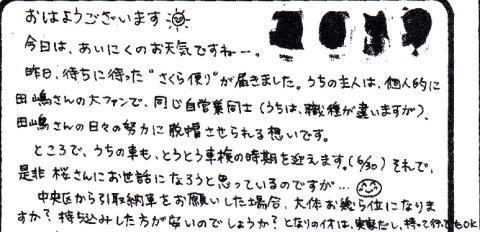 おはようございます
今日は、あいにくのお天気ですねー。
昨日、待ちに待った"さくら便り"が届きました。うちの主人は、個人的に
田嶋さんの大ファンで、同じ自営業同士(うちは、職種が違いますが)、
田嶋さんの日々の努力に脱帽させられる想いです。
ところで、うちの車も、とうとう車検の時期を迎えます。(6/30) それで、
是非 桜さんにお世話になろうと思っているのですが…
中央区から引取納車をお願いした場合、大体お幾ら位になりま
すか?持ち込みした方が安いのでしょうか?となりのイオは、実家だし、持って行てもOK